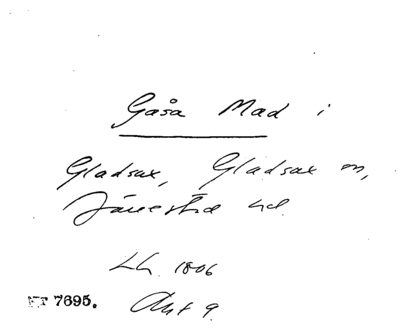 Gåsa Mad i
Gladsax, Gladsax sn,
Järrestad hd.
Lh. 1806
NT 7695. Akt 9.